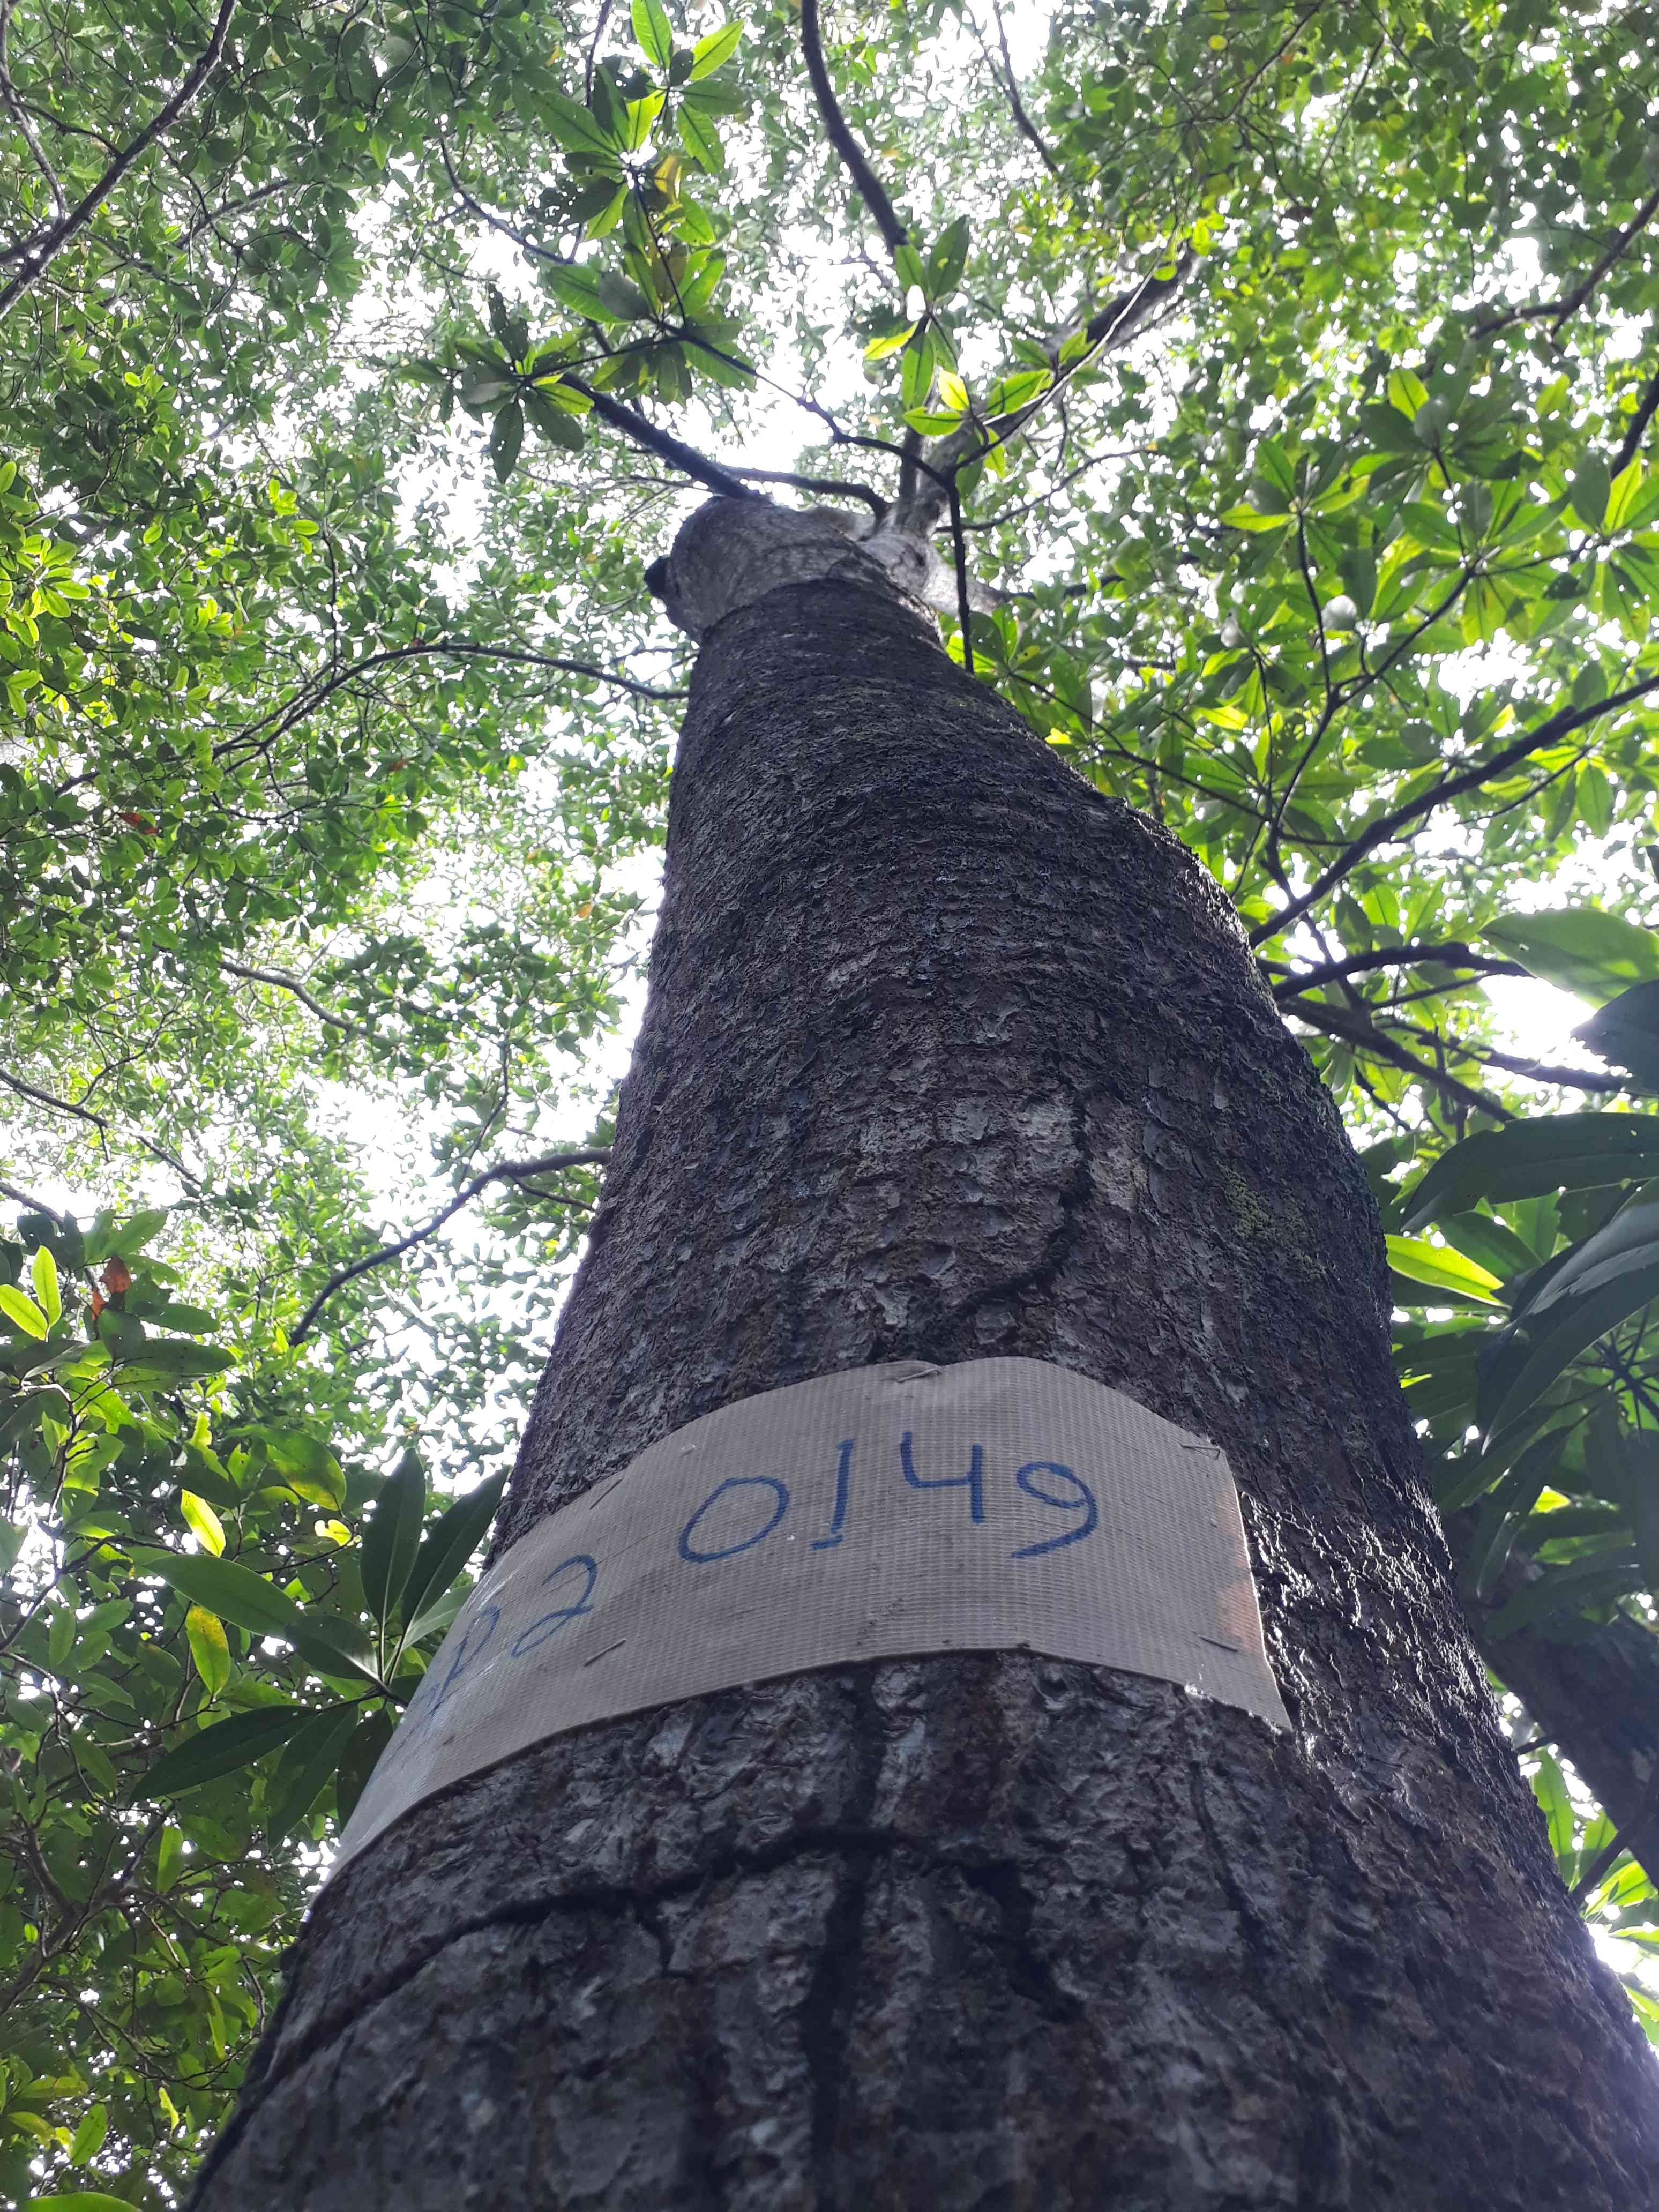 P2 0149